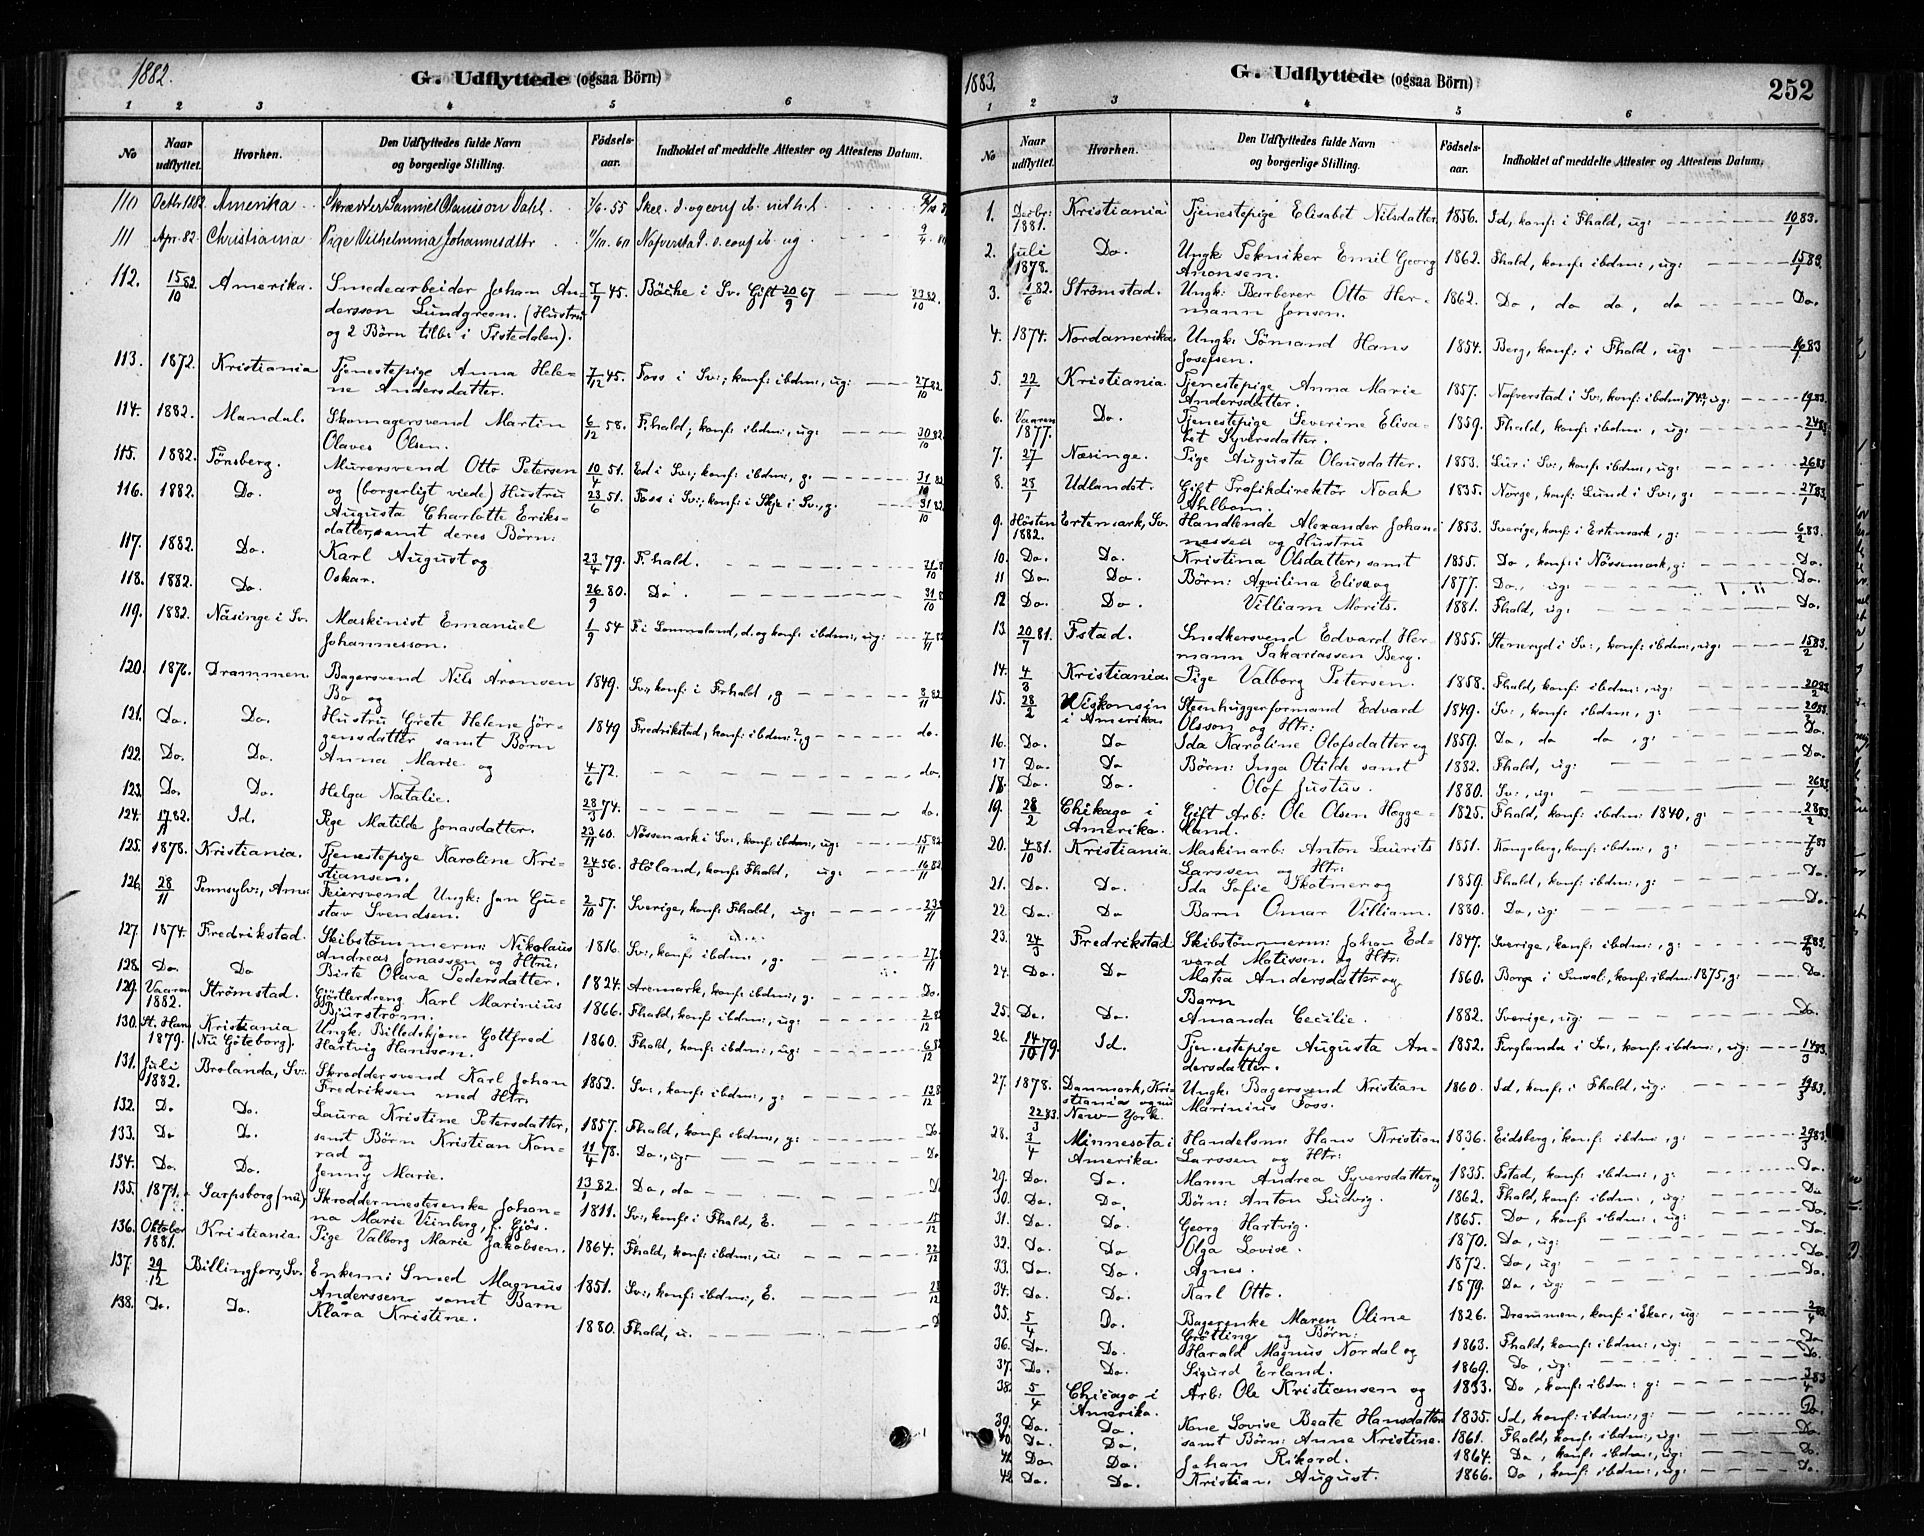 1882.
G. Udflyttede (ogsaa Börn)
1 2 3 4 5 6
No Naar udflyttet. Hvorhen. Den Udflyttedes fulde Navn og borgerlige Stilling. Födsels-aar. Indholdet af meddelte Attester og Attestens Datum.
110 Octb. 1882 Amerika Dahl 55
111 Apr. 82. Christiania Pige Vilhelmina Johannesdttr 60
112. 15/10 82 Amerika. Smedearbeider Johan An- 7/7 45. Bäcke i Sv. Gift 20/9 67 23/10 82.
dersson Lundgreen. (Hustru
og 2 Börn tilbr. i Tistedalen).
113. 1872. Kristiania Tjenestepige Anna Hele- 7/12 45. Foss i Sv:, konf: ibdm:, ug: 27/10 82.
ne Andersdatter.
114. 1882. Mandal. Skomagersvend Martin 6/12 58. Fhald, konf: ibdm:, ug: 30/10 82.
Olaves Olsen.
115. 1882. Tönsberg. Murersvend Otto Petersen 10/4 51. Ed i Sv:, konf: ibdm:, g: 31/10 82
116. 1882. Do. og (borgerligt viede) Hustru 23/6 51. Foss i Sv:, konf: i Skje i Sv:, g. 31/10 82
Augusta Charlotte Eriks-
datter, samt deres Börn:
117. 1882. Do. Karl August og 23/4 79. Fhald. 31/10 8
118. 1882. Do. Oskar. 26/9 80. Do. 31/10 8
119. 1882. Näsinge i Sv. Maskinist Emanuel 1/9 54 d. og konf: ibdm:, ug: 7/11 82
Johannesson.
120. 1876. Drammen. Bagersvend Nils Aronsen 1849. Sv:, konf: i Frhald, g 8/11 82
Bo og
121. Do. Do. Hustru Grete Helene Jör- 1849 Fredrikstad, konf: ibdm:?, g do.
gensdatter samt Börn
122. Do. Do. Anna Marie og 4/6 72. do.
123. Do. Do. Helga Natalie. 28/3 74. do.
124. 17/11 82. Id. Pige Matilde Jonasdatter. 23/11 60. Nössemark i Sv:, konf: ibdm:, ug: 15/11 82
125. 1878. Kristiania. Tjenestepige Karoline Kri- 24/3 56. Höland, konf: Fhald, ug: 16/11 82
stiansen.
126. 28/11 Pennsylv:, Ame: Feiersvend Ungk: Jan Gu- 2/10 57. Sverige, konf: Fhald, ug: 23/11
stav Svendsen.
127. 1874. Fredrikstad. Skibstömmerm: Nikolaus 1816. Sv:, konf: ibdm:, g. 27/11
Andreas Jonassen og Htru:
128. Do. Do Birte Olava Pedersdatter. 1824. Aremark, konf: ibdm:, g: Do.
129. Vaaren 1882. Strömstad. Gjörtlerdreng Karl Marinius 1866. Fhald, konf: ibdm:, ug: 2/12 82
Bjurström.
130. St. Hans 1879. Kristiania (Nu Göteborg). Ungk: Billedskjær: Gottfred 1860. Fhald, konf: ibdm:, ug: 6/12 82
Hartvig Hansen.
131. Juli 1882. Brolanda, Sv: Skreddersvend Karl Johan 1852. Sv:, konf: ibdm:, g: 13/12 8
Fredriksen med Htr:
132. D. Do. Laura Kristine Petersdatter, 1857. Fhald, konf: ibdm:, g: Do
133. Do Do. samt Börn Kristian Kon- 11/4 78. Do., ug: Do
rad og
134. Do. Do. Jenny Marie. 82. Do, do D
135. 1871. Sarpsborg (nu) Skreddermesterenke Johan- 1811. Sv:, konf: i Fhald, E. 15/12
na Marie Veinberg, f. Gjös.
136. Oktober 1881. Kristiania. Pige Valborg Marie Jakobsen. 1864. Fhald, konf: ibdm:, u: 22/12
137. 29/12 Billingfors, Sv. Enkem: Smed Magnus 1851. Sv:, konf: ibdm:, E. 28/12
Anderssen samt Barn
138. Do. Do. Klara Kristine. 1880. Fhald, u. D
1883.
G. Udflyttede (ogsaa Börn)
252
1 2 3 4 5 6
No Naar udflyttet. Hvorhen. Den Udflyttedes fulde Navn og borgerlige Stilling. Födsels-aar. Indholdet af meddelte Attester og Attestens Datum.
1. Decbr: 1881. Kristiania Tjenestepige Elisabet Nilsdatter 1856. Id, konf: i Fhald, ug: 10/1 83.
2. Juli 1878. Do. Ungk Tekniker Emil Georg 1862. Fhald, konf: ibdm:, ug: 15/1 83.
Aronsen.
3. 1/6 82. Strömstad. Ungk: Barberer Otto Her- 1862. Do, do do, do Do.
mann Jensen.
4. 1874. Nordamerika. Ungk: Sömand Hans 1854. Berg, konf: i Fhald, ug: 16/1 83
Josefsen.
5. 22/1 Kristiania. Tjenestepige Anna Marie 1857. Nafverstad i Sv:, konf: ibdm: 74?, ug: 19/1 83.
Andersdatter.
6. Vaaren 1877. Do. Tjenestepige Severine Elisa- 1859. Fhald, konf: ibdm:, ug: 24/1 83
bet Syversdatter.
7. 27/1 Næsinge. Pige Augusta Olausdatter. 1853. Lur i Sv:, konf: ibdm:, ug: 26/1 83
8. 28/1 Udlandet. Gift Trafikdirektör Noak 1835. Norge, konf: Lund i Sv:, g: 27/1 83.
Ahlbom.
9. Hösten 1882. Ertemark, Sv. Handlende Alexander Johan- 1853. Sverige, konf: i Ertemark, g: 6/2 83.
nessen og Hustru
10. Do. Do. Kristina Olsdatter, samt 1855. Do, konf: i Nössemark, g: Do.
11 Do. Do. Börn: Agvilina Elisa og 1877. Do, ug: Do.
12 Do. Do. Villiam Morits. 1881. Fhald, ug: Do.
13. 20/7 81. Fstad. Smedkersvend Edvard Her- 1855. Steneryd i Sv:, konf: ibdm:, ug: 15/2 83.
mann Sakariassen Berg.
14. 4/3 Kristiania. Pige Valborg Petersen. 1858. Fhald, konf: ibdm:, ug: 20/2 83.
15. 28/2 Wiskonsin i Amerika. Stenhuggerformand Edvard 1849. Sv:, konf: ibdm:, g: 20/2 83.
Olsson og Htr:
16. Do. Do Ida Karoline Olofsdatter og 1859. Do, do do, g: Do.
17 Do. Do Börn: Inga Otilde samt 1882. Fhald, ug: Do.
18. Do. Do. Olof Justus. 1880. Sv:, ug: 26/2 83
19. 28/2 Chikago i Amerika. Gift Arb: Ole Olsen Hegge- 1825. Fhald, konf: ibdm: 1840, g: 28/2 83.
lund.
20. 4/10 81. Kristiania. Maskinarb: Anton Laurits 1851. Kongsberg, konf: ibdm:, g: 7/3 83
Larssen og Htr:
21. Do. Do. Ida Sofie Skotner og 1859. Fhald, konf: ibdm:, g: Do.
22. Do. Do Barn Omar Villiam. 1880. Do, ug: Do.
23. 24/3 Fredrikstad Skibstömmerm: Johan Ed- 1847. Sverige, konf: ibdm:, g: 83.
vard Matissen og Htr:
24. Do. Do Matea Andersdatter og 1860. Borge i Smaal:, konf: ibdm: 1875, g: Do
Barn
25. Do. Do. Amanda Cecilie. 1882. Sverige, ug: Do.
26. 14/10 79. Id. Tjenestepige Augusta An- 1852. Ferglanda i Sv:, konf: ibdm:, ug: 14/3 83.
dersdatter.
27. 1878. 22/3 83. Danmark, Kri- stiania og nu New-York. Ungk: Bagersvend Kristian 1860. Id, konf: i Fhald, ug: 19/3 83.
Marinius Foss.
28. 3/4 Minnesota i Amerika. Handelsm: Hans Kristian 1836. Eidsberg, konf: ibdm:, g: 29/3 83.
Larssen og Htr:
29. Do. Do. Maren Andrea Syversdatter og 1835. Fstad, konf: ibdm:, g: Do.
30. Do. Do. Börn: Anton Ludvig. 1862. Fhald, konf: ibdm:, ug: Do
31. Do. Do. Georg Hartvig. 1865. Do, konf: ibdm:, ug: Do.
32. Do. Do Olga Lovise. 1870. Do, ug: Do.
33. Do. Do. Agnes. 1872. Do, ug: Do
34. Do. Do. Karl Otto. 1879. Do, ug: Do.
35. 5/4 Do. Bagerenke Maren Oline 1826. Drammen, konf: i Eker, ug: 2/4 83
Grötting og Börn:
36. Do. Do. Harald Magnus Nordal og 1863. Fhald, konf: ibdm:, ug: Do
37. Do. Do. Sigurd Erland. 1869. Do, ug: Do.
38. 5/4 Chicago i Amerika. Arb: Ole Kristiansen og 1833. Do, konf: ibdm: g: 3/4 83
39. Do. Do. Kone Lovise Beate Hansdatter 1835. Id, konf: ibdm:, g: Do.
40. Do. Do. samt Börn: Anne Kristine. 1861. Fhald, konf: ibdm:, ug: Do
41. Do. Do. Johan Rikard. 1864. Do, konf: ibdm:, ug: Do.
42. Do. Do. Kristian August. 1866. Do, konf: ibdm:, ug: Do.